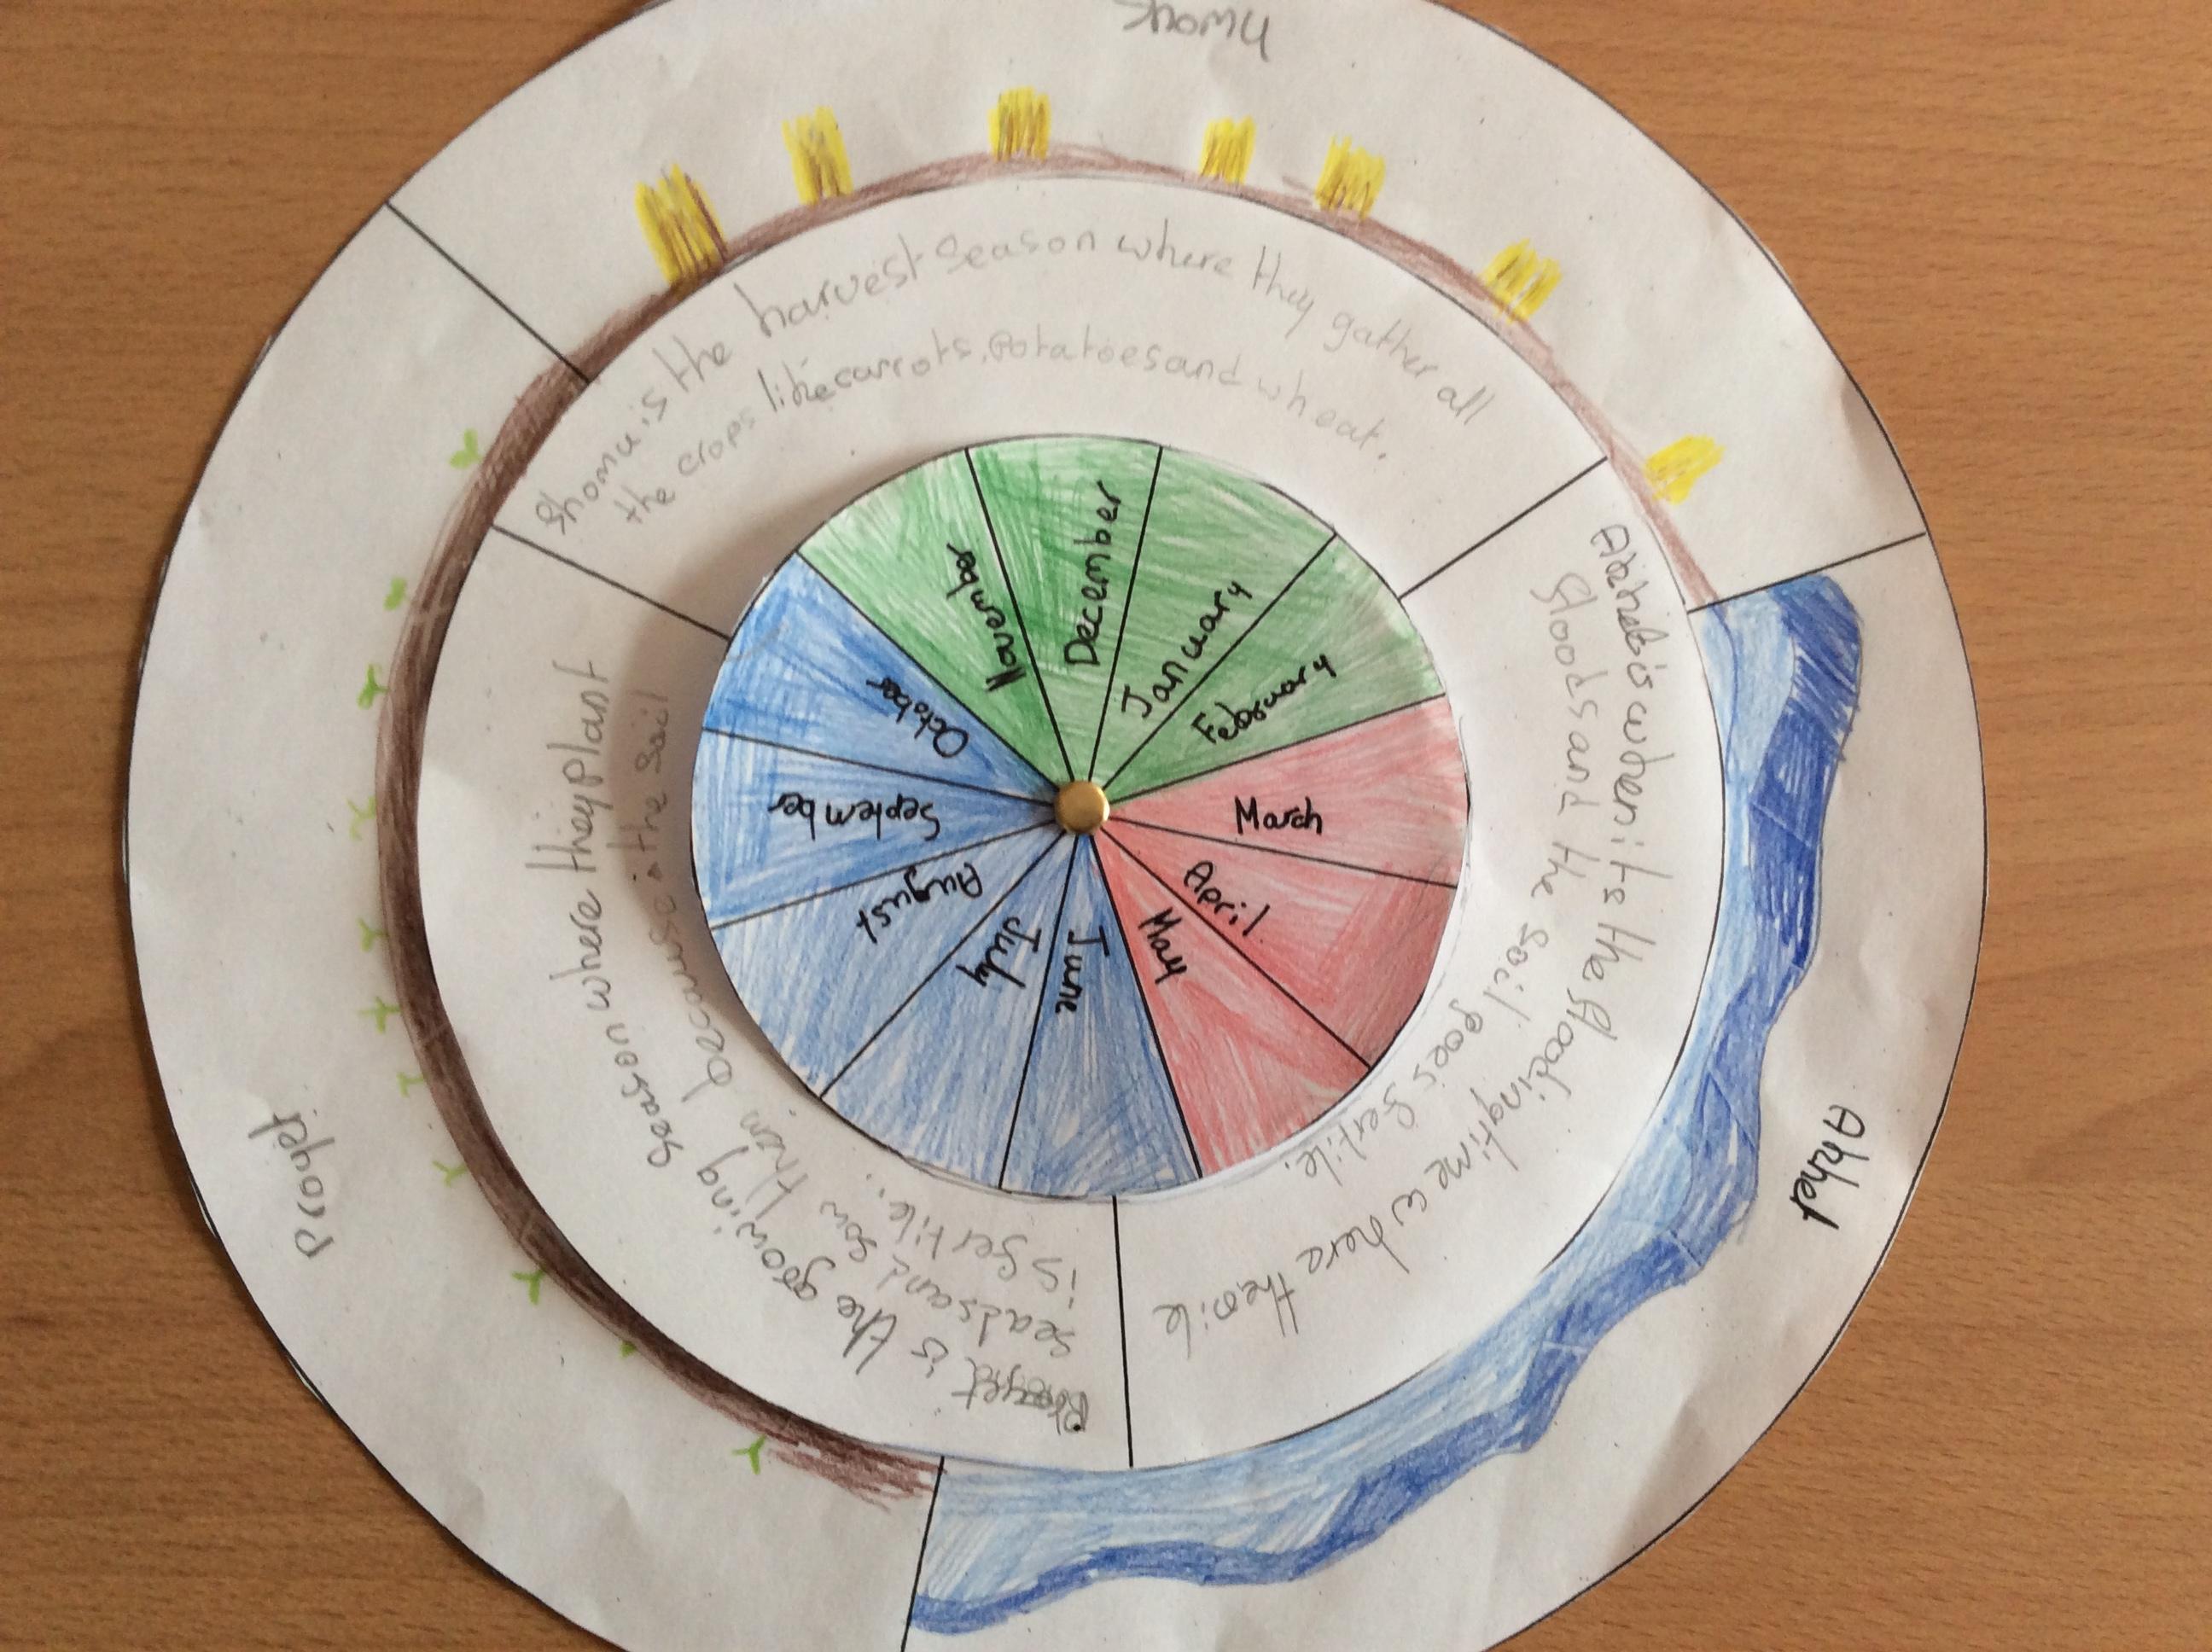 Shomu
Shomu is the harvest season where they gather all
the crops like carrots, Potatoes and wheat.
Akhet is when it's the flooding time where the nile
floods and the soil goes fertile.
Akhet
is the growing season where they plant
seads and sow them because the soil
is fertile..
Proyet
January
February
March
April
May
June
July
August
September
October
November
December